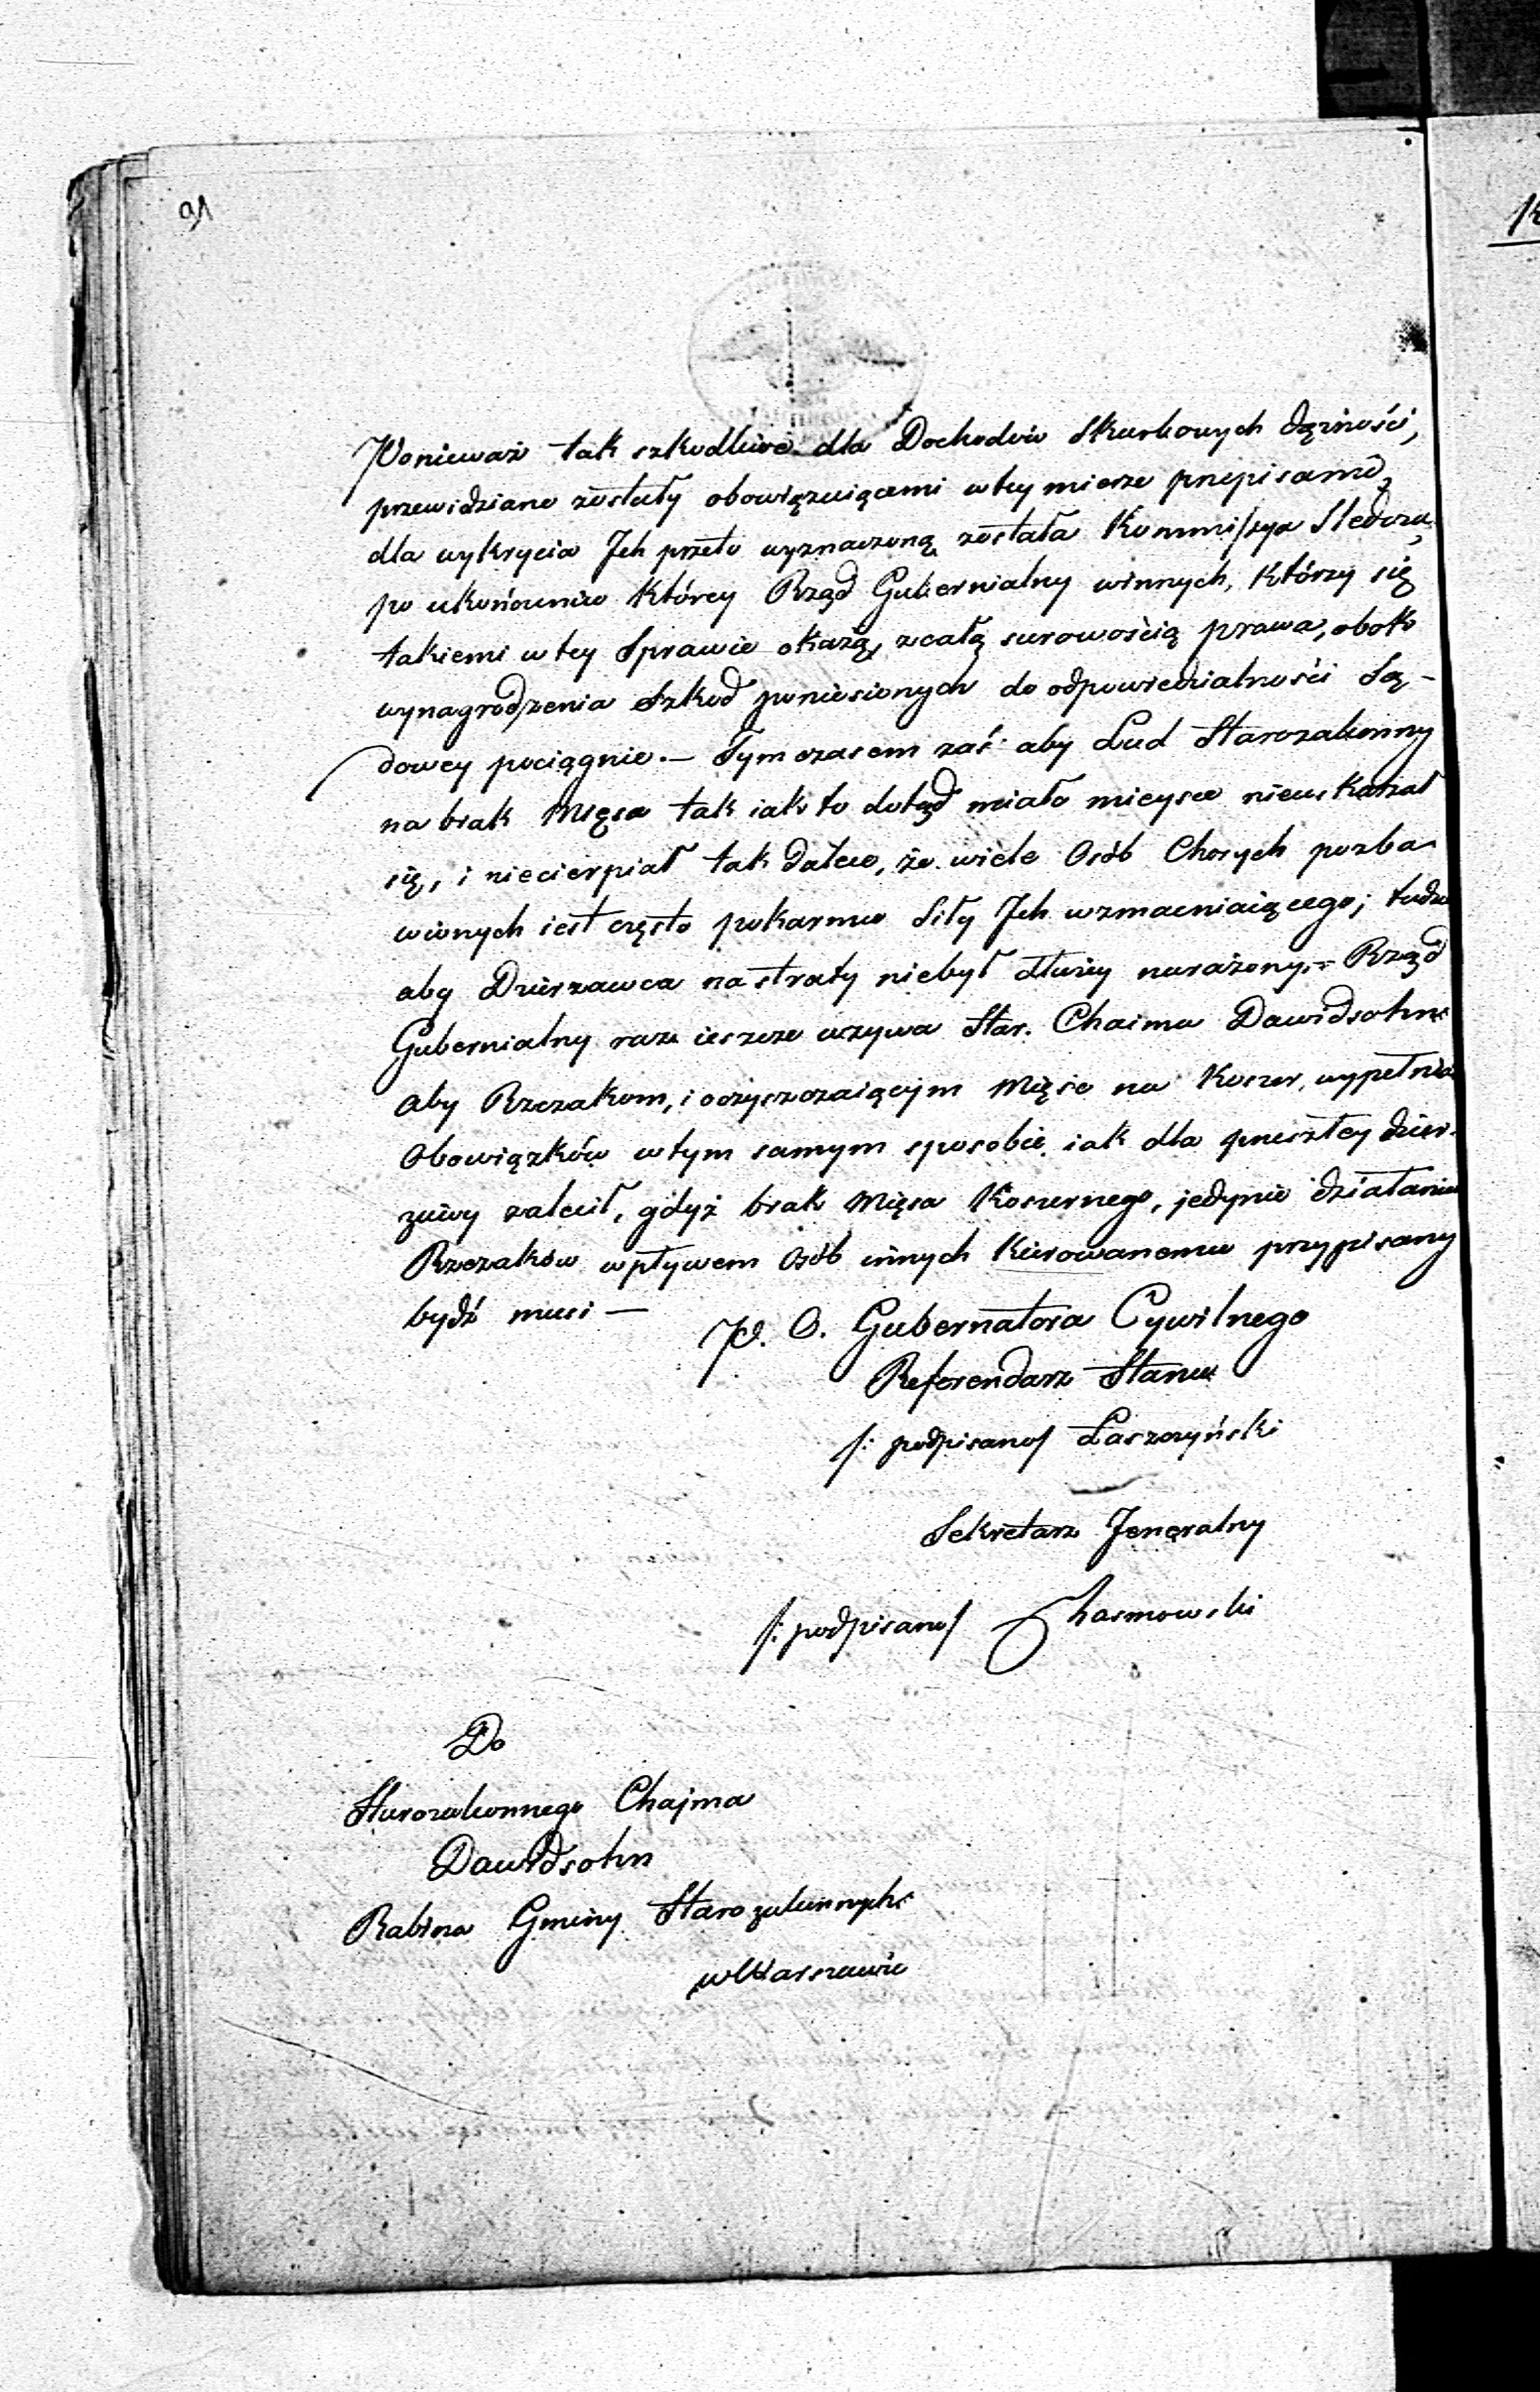 91
Ponieważ tak szkodliwe dla Dochodów Skarbowych dążności,
przewidziane zostały obowiązuiącemi w tey mierze przepisami,
dla wykrycia Ich przeto wyznaczoną została Kommissya Sledcza,
po ukończeniu którey Rząd Gubernialny winnych, którzy się
takiemi w tey Sprawie okażą, z całą surowością prawa, obok
wynagrodzenia Szkod poniesionych do odpowiedzialności Są-
dowey pociągnie. — Tymczasem zaś aby Lud Starozakonny
na brak Mięsa tak iak to dotąd miało mieysce nieuskarżał
się, i niecierpiał tak dalece, że wiele Osób Chorych pozba-
wionych iest często pokarmu Siły Ich wzmacniaiącego; tudzie
aby Dzierzawca na straty niebył dłużey narażony. — Rząd
Gubernialny raz ieszcze wzywa Star. Chaima Dawidsohn
aby Rzezakom, i oczyszczaiącym Mięso na Koszer, wypełnia
Obowiązków w tym samym sposobie iak dla przeszłey dzier-
żawy zalecił, gdyż brak Mięsa Koszernego, jedynie działaniu
Rzezaków wpływem Osób innych Kierowanemu przypisany
bydź musi —
P. O. Gubernatora Cywilnego
Referendarz Stanu
/: podpisano/ Łaszczyński
Sekretarz Jeneralny
/: podpisano/
Do
Starozakonnego Chajma
Dawidsohn
Rabina Gminy Starozakonnych
w Warszawie